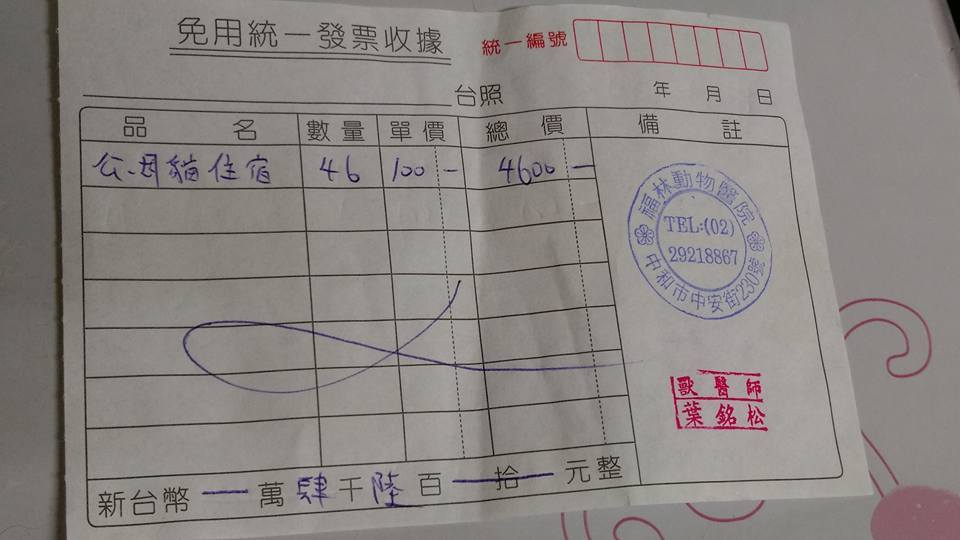 免用統一發票收據
統一編號
台照 年 月 日
品 名 數量 單價 總價 備註
公、母貓住宿 46 100 - 4600 -
福林動物醫院
TEL:(02)
29218867
中和市中安街230號
獸醫師
葉銘松
新台幣 — 萬肆千陸百 — 拾 — 元整